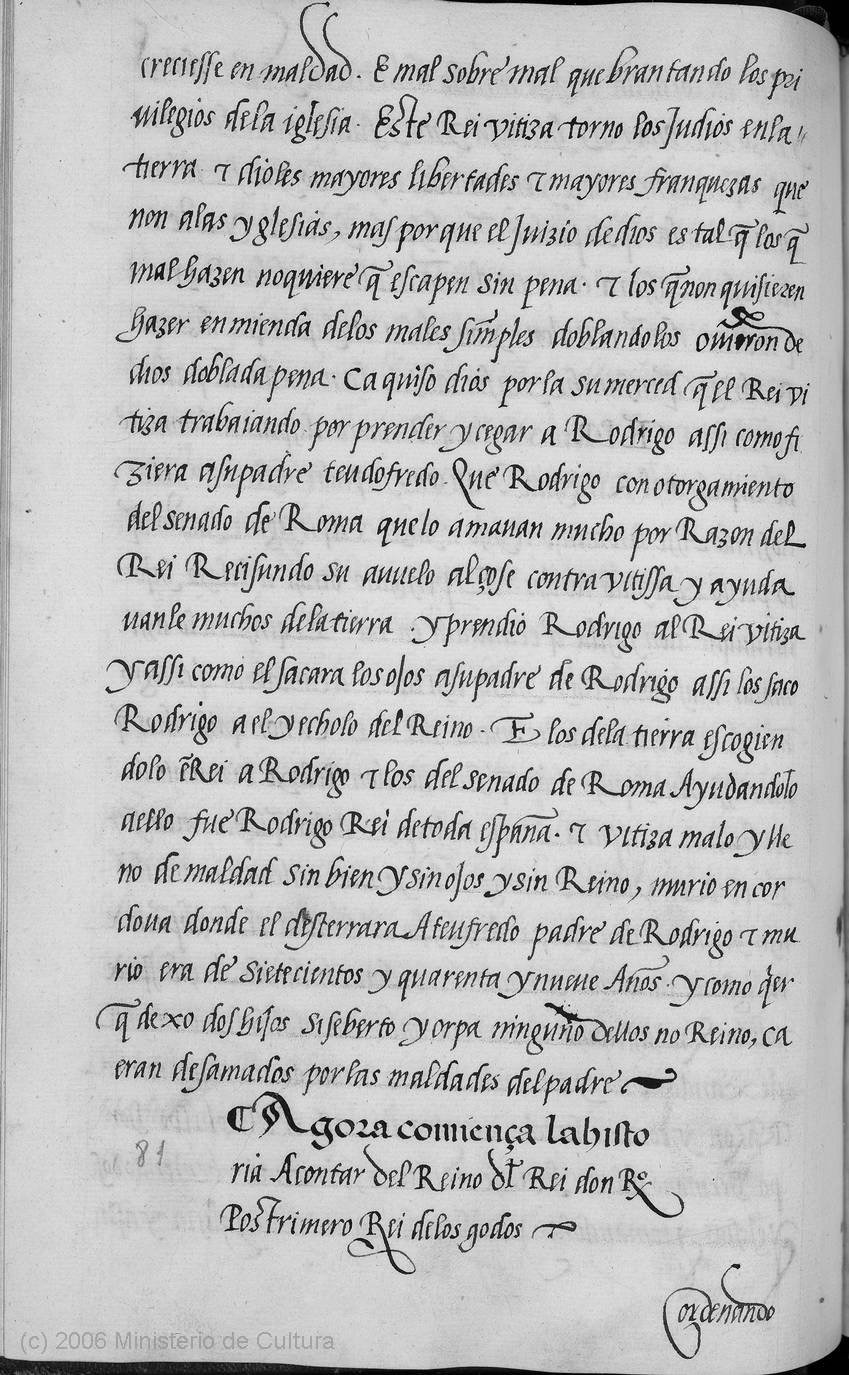 creciesse en maldad. E mal sobre mal quebrantando los pri
vilegios dela iglesia. Este Rei vitiza torno los Judios enla
tierra τ dioles mayores libertades τ mayores franquezas que
non alas yglesias, mas por que el Juizio de dios es tal q̃ los q̃
mal hazen no quiere q̃ escapen sin pena. τ los q̃ non quisieren
hazer enmienda delos males simples doblandolos ovieron de
dios doblada pena. Ca quiso dios por la su merced q̃ el Rei vi
tiza trabaiando por prender y cegar a Rodrigo assi como fi
ziera asu padre teudofredo. Que Rodrigo con otorgamiento
del senado de Roma que lo amauan mucho por Razon del
Rei Recisundo su auuelo alçose contra vitissa y ayuda
uanle muchos dela tierra y prendio Rodrigo al Rei vitiza
y assi como el sacara los ojos asu padre de Rodrigo assi los saco
Rodrigo a el y echolo del Reino. E los dela tierra escogien
dolo ẽ Rei a Rodrigo τ los del senado de Roma Ayudandolo
aello fue Rodrigo Rei de toda españa. τ vitiza malo y lle
no de maldad sin bien y sin ojos y sin Reino, murio en cor
doua donde el desterrara A teufredo padre de Rodrigo τ mu
rio era de sietecientos y quarenta y nueue Años. y como qer
q̃ dexo dos hijos siseberto y orpa ninguno dellos no Reino, ca
eran desamados por las maldades del padre
Agora comiença la histo
81
ria A contar del Reino dl Rei don Ro.
Postrimero Rei delos godos
ordenando
(c) 2006 Ministerio de Cultura